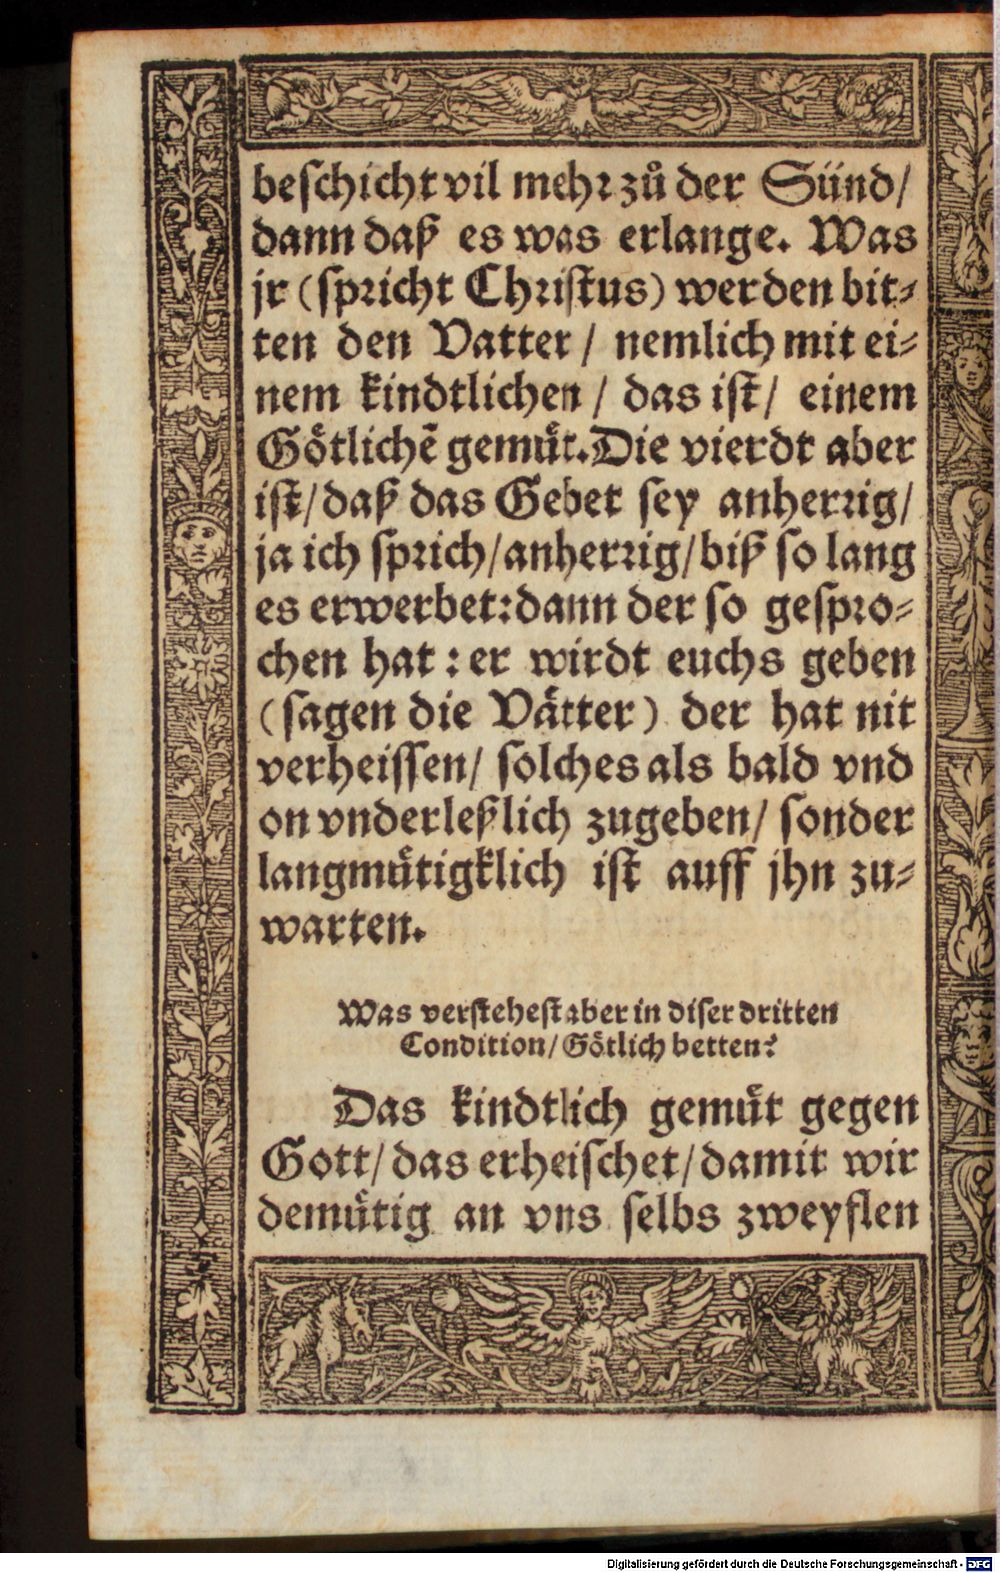 beschicht vil mehr zů der Sünd/
dann daß es was erlange. Was
jr (spricht Christus) werden bit-
ten den Vatter / nemlich mit ei-
nem kindtlichen / das ist / einem
Goͤtlichẽ gemuͤt. Die vierdt aber
ist / daß das Gebet sey anherrig /
ja ich sprich / anherrig / biß so lang
es erwerbet: dann der so gespro-
chen hat : er wirdt euchs geben
(sagen die Vaͤtter) der hat nit
verheissen / solches als bald vnd
on vnderleßlich zugeben / sonder
langmuͤtigklich ist auff jhn zu-
warten.
Was verstehest aber in diser dritten
Condition / Goͤtlich betten?
Das kindtlich gemuͤt gegen
Gott / das erheischet / damit wir
demuͤtig an vns selbs zweyflen
Digitalisierung gefördert durch die Deutsche Forschungsgemeinschaft - DFG